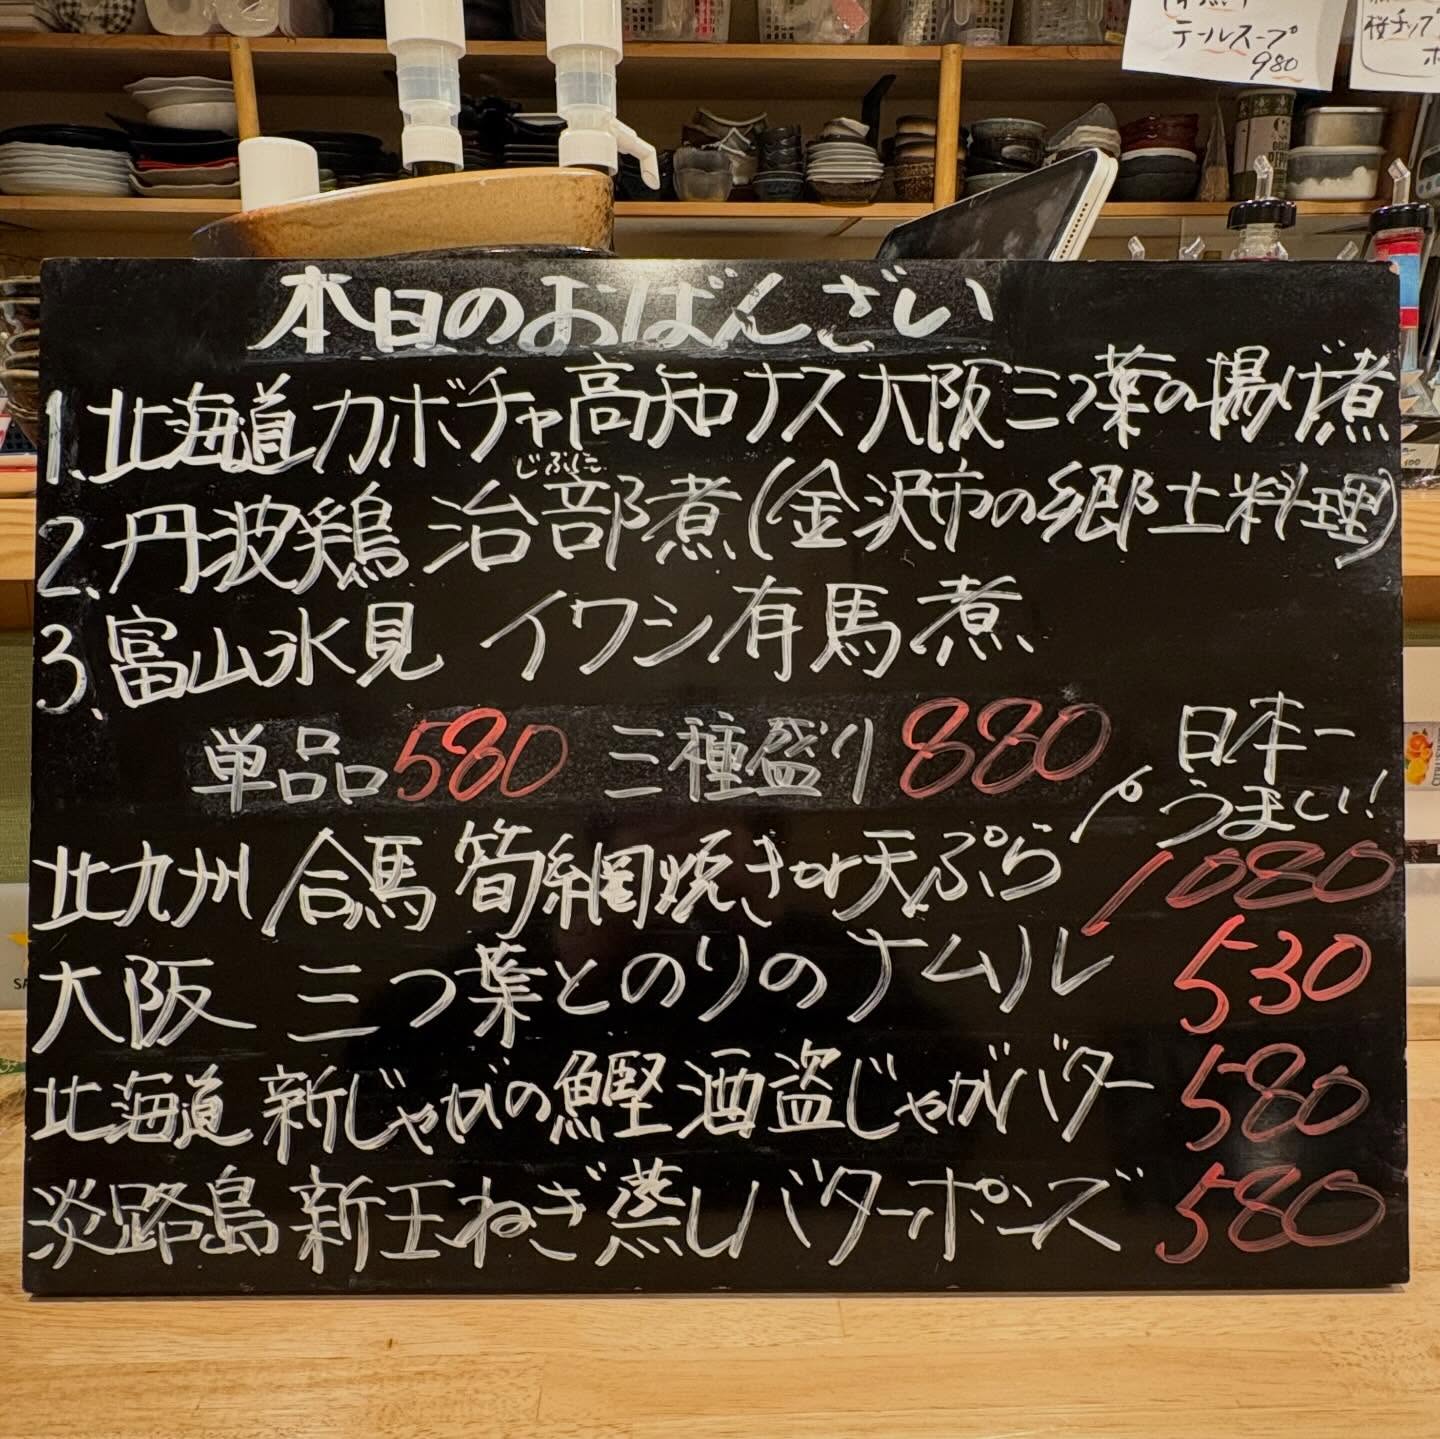 テールスープ
980
桜チップ
本日のおばんざい
1.北海道カボチャ高知ナス大阪三つ葉の揚げ煮
じぶに
2.丹波鶏 治部煮(金沢市の郷土料理)
3.富山氷見 イワシ有馬煮
単品580 三種盛り880
日本一
うまい!
北九州 合馬 筍網焼きor天ぷら 1080
大阪 三つ葉とのりのナムル 530
北海道 新じゃがの鰹酒盗じゃがバター 580
淡路島 新玉ねぎ蒸しバターポンズ 580